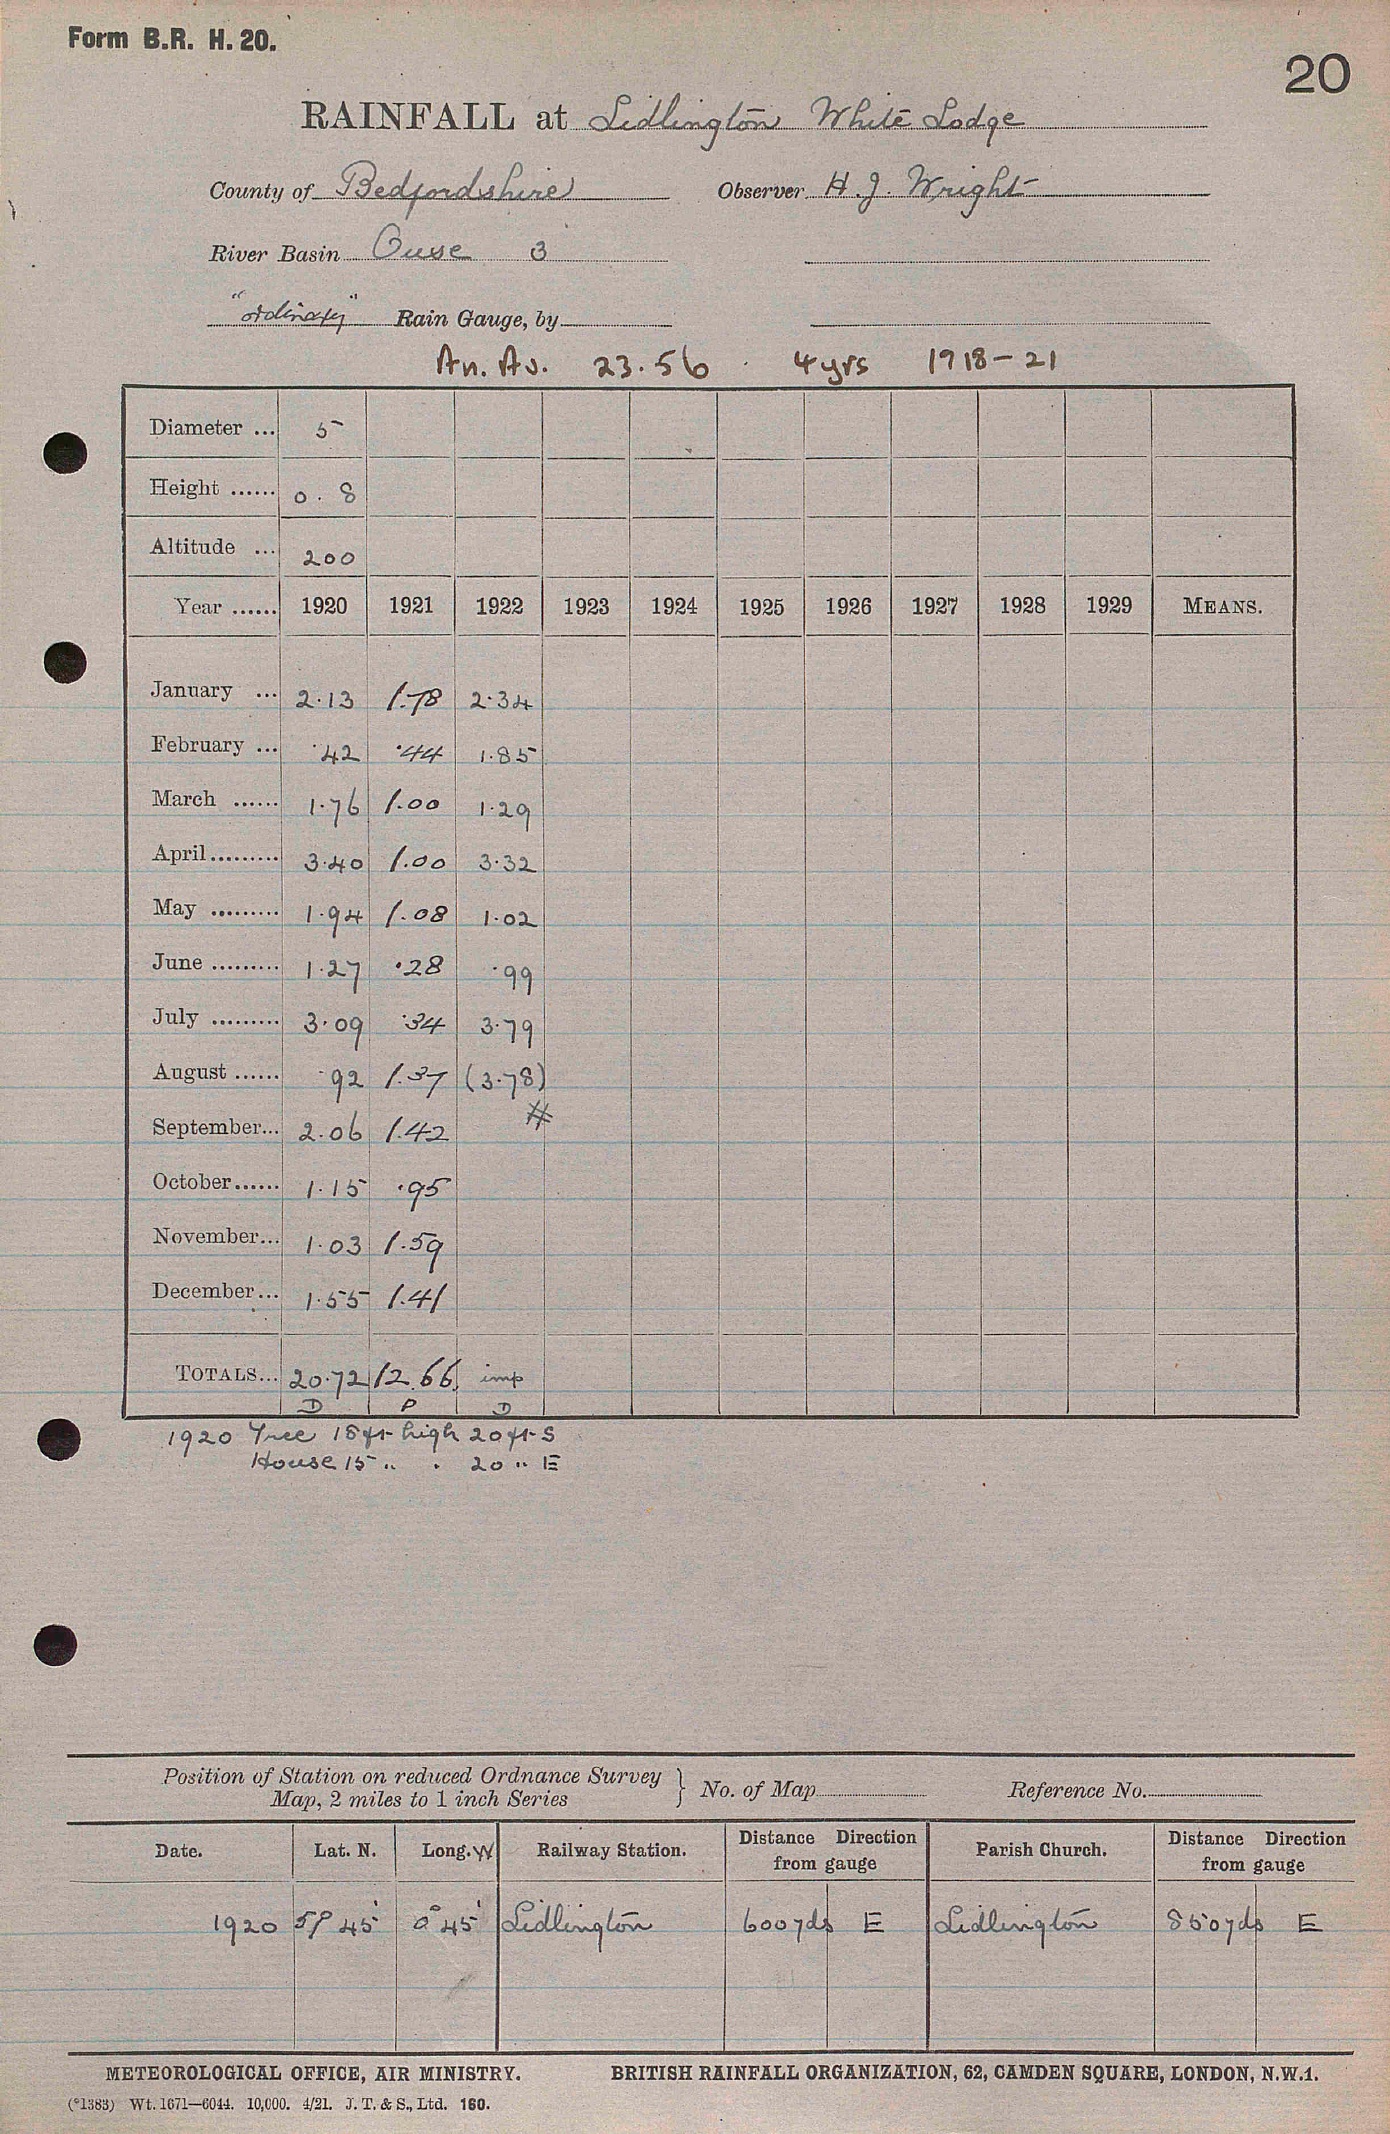 Form B.R. H. 20.
20
RAINFALL at Lidlington White Lodge
County of Bedfordshire Observer H. J. Wright
River Basin Ouse 3
"ordinary" Rain Gauge, by
An. Av. 23.56 . 4 yrs 1918-21
Diameter ... 5
Height ...... 0.8
Altitude ... 200
Year ...... 1920 1921 1922 1923 1924 1925 1926 1927 1928 1929 MEANS.
January ... 2.13 1.78 2.34
February ... .42 .44 1.85
March ...... 1.76 1.00 1.29
April......... 3.40 1.00 3.32
May ......... 1.94 1.08 1.02
June ......... 1.27 .28 .99
July ......... 3.09 .34 3.79
August ...... .92 1.37 (3.78)
#
September... 2.06 1.42
October...... 1.15 .95
November... 1.03 1.59
December... 1.55 1.41
TOTALS... 20.72 12.66 imp
D P D
1920 Tree 18 ft high 20 ft S
House 15 " . 20 " E
Position of Station on reduced Ordnance Survey
Map, 2 miles to 1 inch Series } No. of Map Reference No.
Date. Lat. N. Long. W Railway Station. Distance Direction from gauge Parish Church. Distance Direction from gauge
1920 51° 45' 0° 45' Lidlington 600 yds E Lidlington 850 yds E
METEOROLOGICAL OFFICE, AIR MINISTRY. BRITISH RAINFALL ORGANIZATION, 62, CAMDEN SQUARE, LONDON, N.W.1.
(*1383) Wt. 1671—6044. 10,000. 4/21. J. T. & S., Ltd. 160.